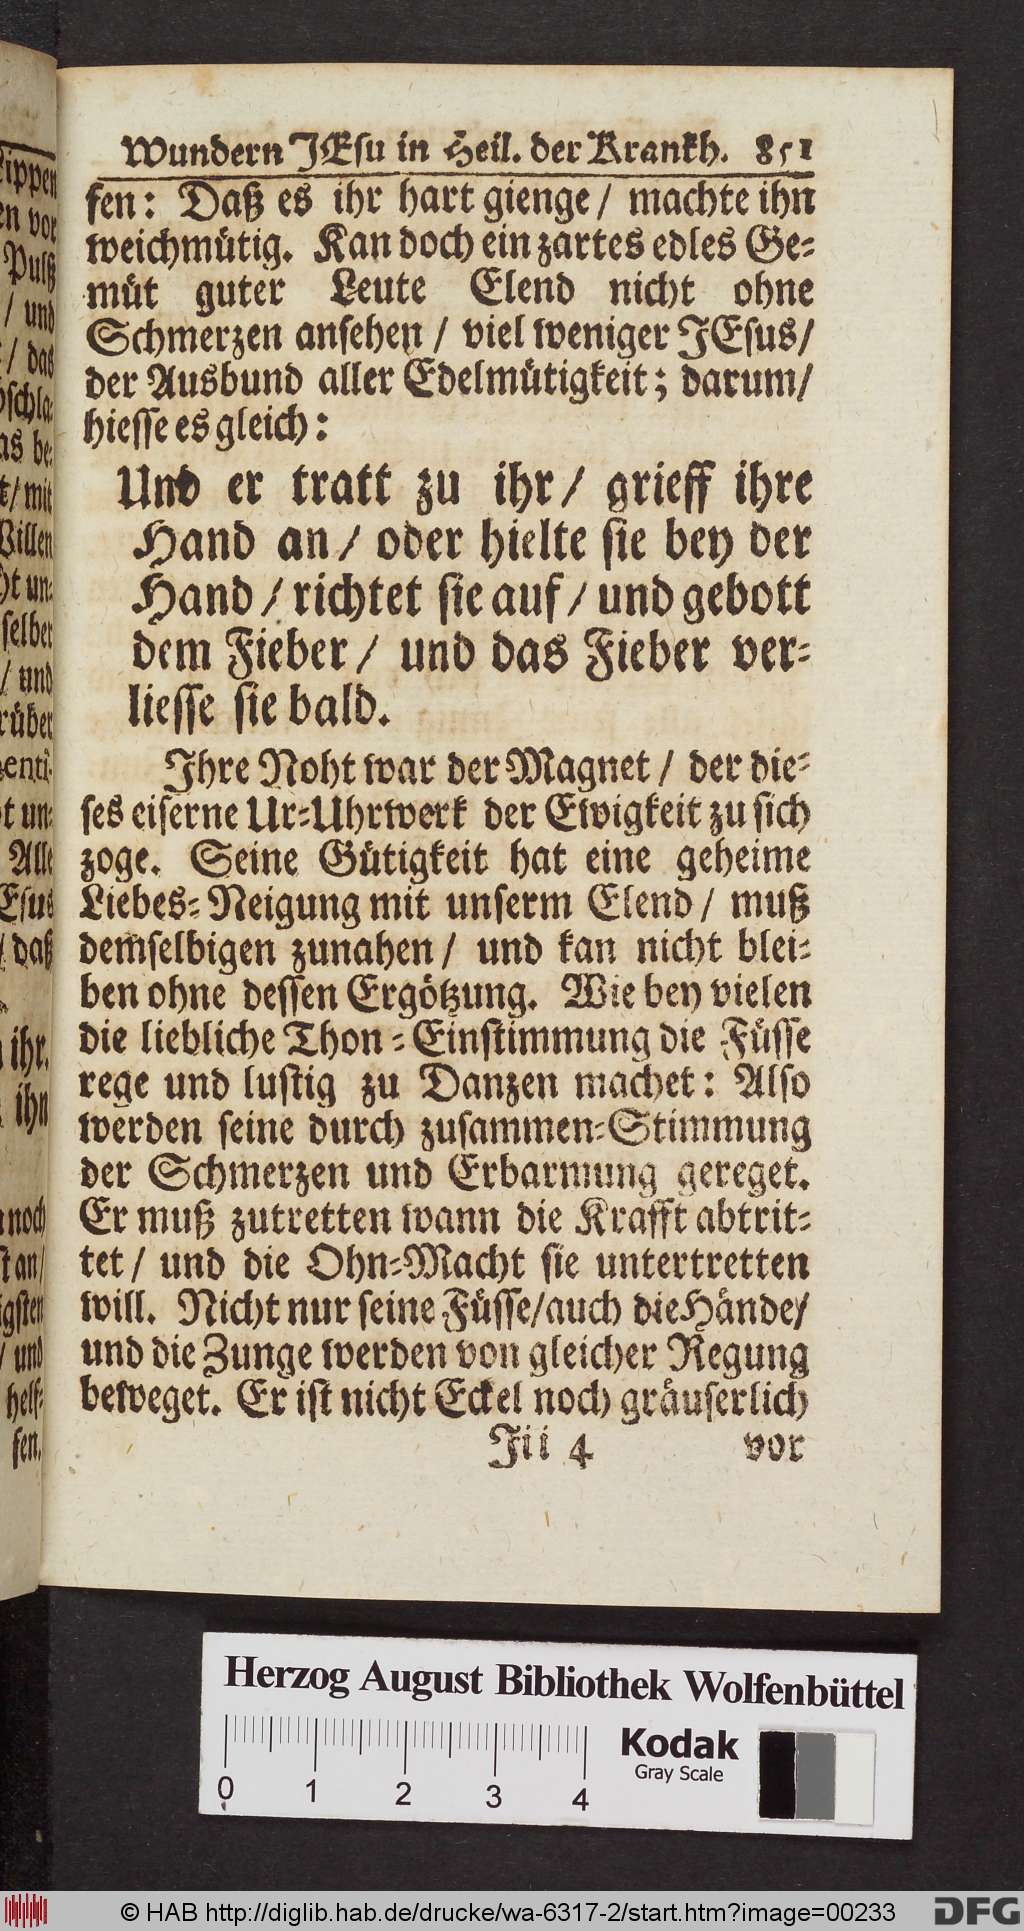 Wundern JEsu in Heil. der Krankh. 851
fen: Daß es ihr hart gienge / machte ihn
weichmütig. Kan doch ein zartes edles Ge-
müt guter Leute Elend nicht ohne
Schmerzen ansehen / viel weniger JEsus /
der Ausbund aller Edelmütigkeit; darum /
hiesse es gleich:
Und er tratt zu ihr / grieff ihre
Hand an / oder hielte sie bey der
Hand / richtet sie auf / und gebott
dem Fieber / und das Fieber ver-
liesse sie bald.
Ihre Noht war der Magnet / der die-
ses eiserne Ur-Uhrwerk der Ewigkeit zu sich
zoge. Seine Gütigkeit hat eine geheime
Liebes-Neigung mit unserm Elend / muß
demselbigen zunahen / und kan nicht blei-
ben ohne dessen Ergötzung. Wie bey vielen
die liebliche Thon-Einstimmung die Füsse
rege und lustig zu Danzen machet: Also
werden seine durch zusammen-Stimmung
der Schmerzen und Erbarmung gereget.
Er muß zutretten wann die Krafft abtrit-
tet / und die Ohn-Macht sie untertretten
will. Nicht nur seine Füsse / auch die Hände /
und die Zunge werden von gleicher Regung
beweget. Er ist nicht Eckel noch gräuserlich
Jii 4 vor
Lippen
en vor
Pulß
/ und
/ das
bschla-
as be-
t / mit
Willen
ht un-
selber
/ und
rüber
enti-
t un-
Alle
Esus
/ daß
ihr.
ihn
noch
st an /
igsten
/ und
helf-
fen.
Herzog August Bibliothek Wolfenbüttel
0 1 2 3 4
Kodak
Gray Scale
© HAB http://diglib.hab.de/drucke/wa-6317-2/start.htm?image=00233
DFG